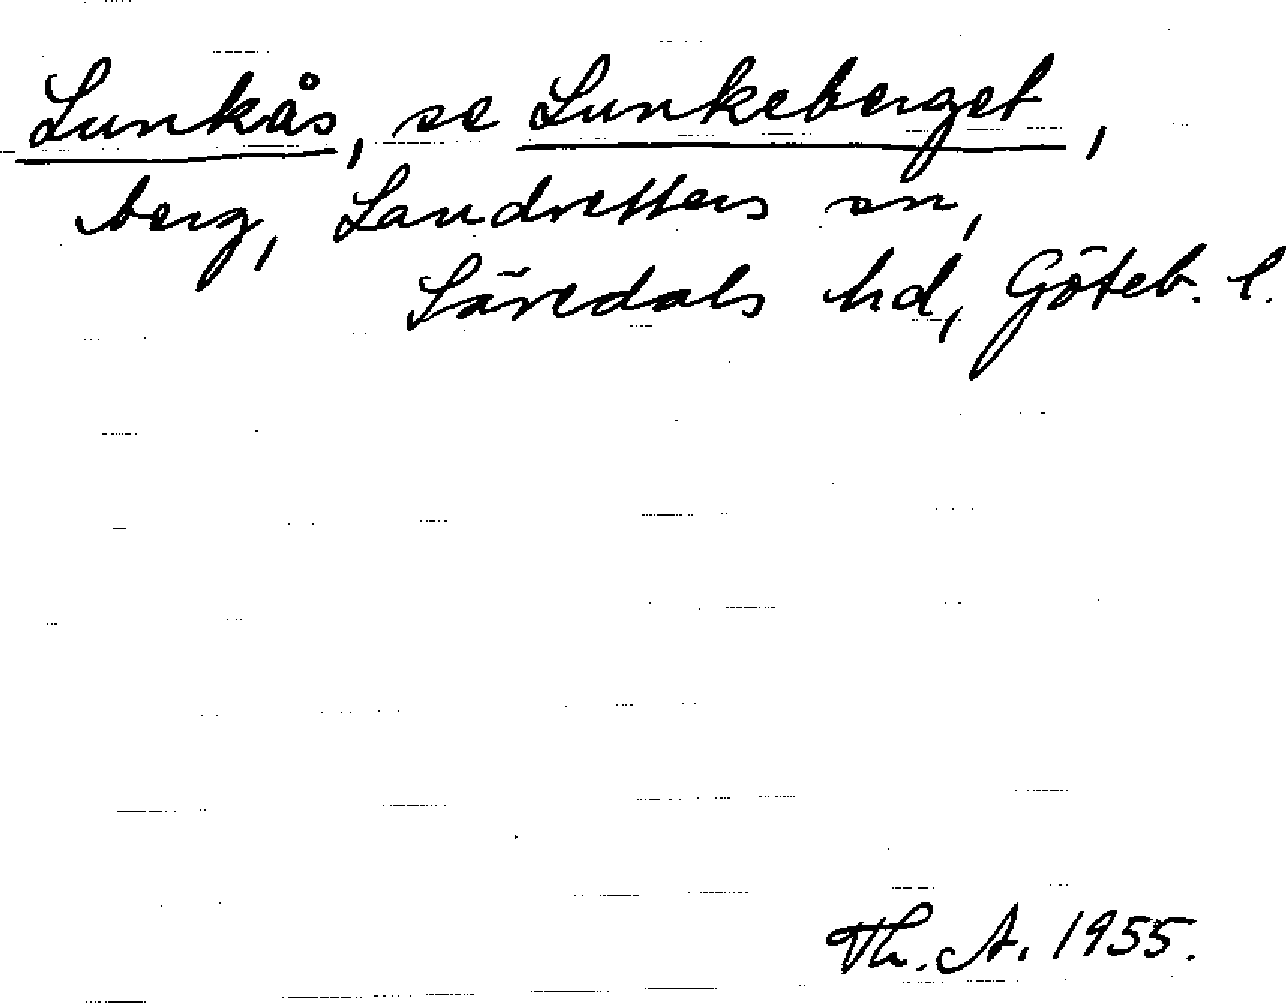 Lunkås, se Lunkeberget,
berg, Landvetters sn,
Sävedals hd, Göteb. l.
Th. A. 1955.